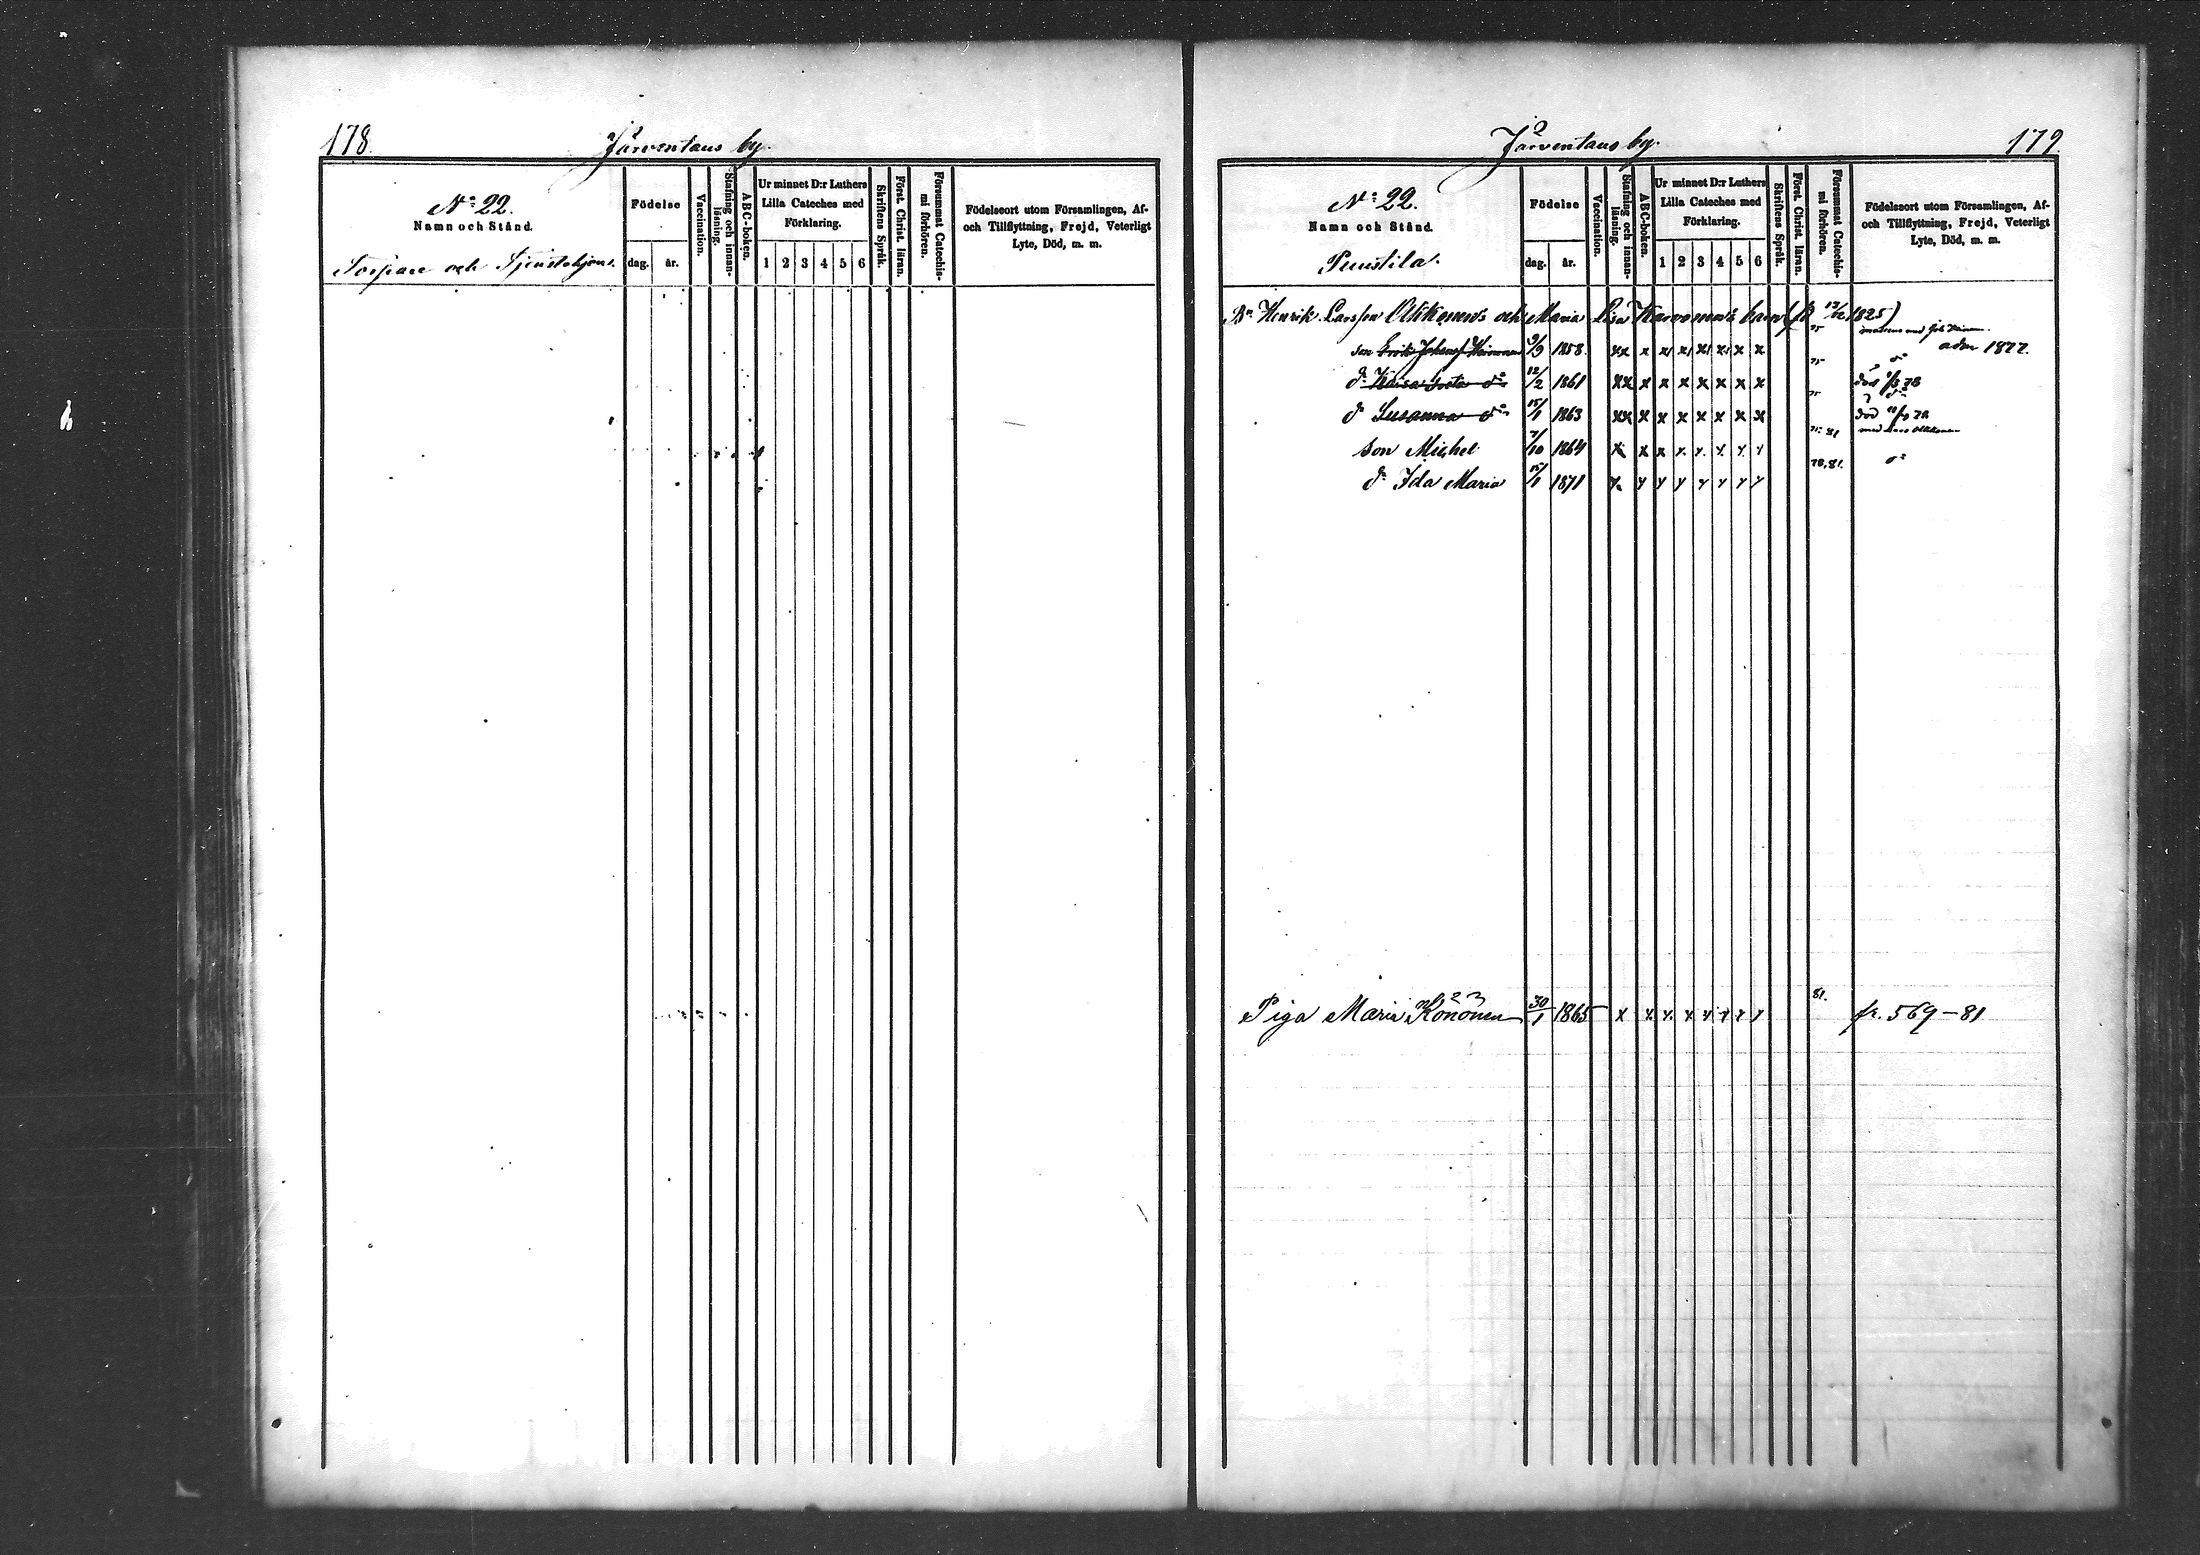 178.
Järventaus by.
N:o 22.
Namn och Stånd.
Födelse
dag. år.
Vaccination.
Stafning och innanläsning.
ABC-boken.
Ur minnet D:r Luthers
Lilla Cateches med
Förklaring.
1 2 3 4 5 6
Skriftens Språk.
Först. Christ. läran.
Försummat Catechismi förhören.
Födelseort utom Församlingen, Af-
och Tillflyttning, Frejd, Veterligt
Lyte, Död, m. m.
Torpare och Tjenstehjon.
Järventaus by.
179.
N:o 22.
Namn och Stånd.
Puustila.
Födelse
dag. år.
Vaccination.
Stafning och innanläsning.
ABC-boken.
Ur minnet D:r Luthers
Lilla Cateches med
Förklaring.
1 2 3 4 5 6
Skriftens Språk.
Först. Christ. läran.
Försummat Catechismi förhören.
Födelseort utom Församlingen, Af-
och Tillflyttning, Frejd, Veterligt
Lyte, Död, m. m.
Bn Henrik Larsson Olkkonens och Maria Lisa Karvonens barn (f. 12/12 1825)
son Erik Johan 9/9 1858 xx x x x x x x x 75 adm 1877.
dr Kaisa do 12/2 1861 xx x x x x x x x 75 do död 78
dr Susanna do 15/1 1863 xx x x x x x x x 75 do död 78
son Michel 7/10 1864 x x x x x x x x 75. 81 med Lars Olkkonen
dr Ida Maria 15/1 1871 x x x x x x x x 78, 81. do
Piga Maria Könönen 30/1 1865 x x x x x x x x 81. fr. 569–81